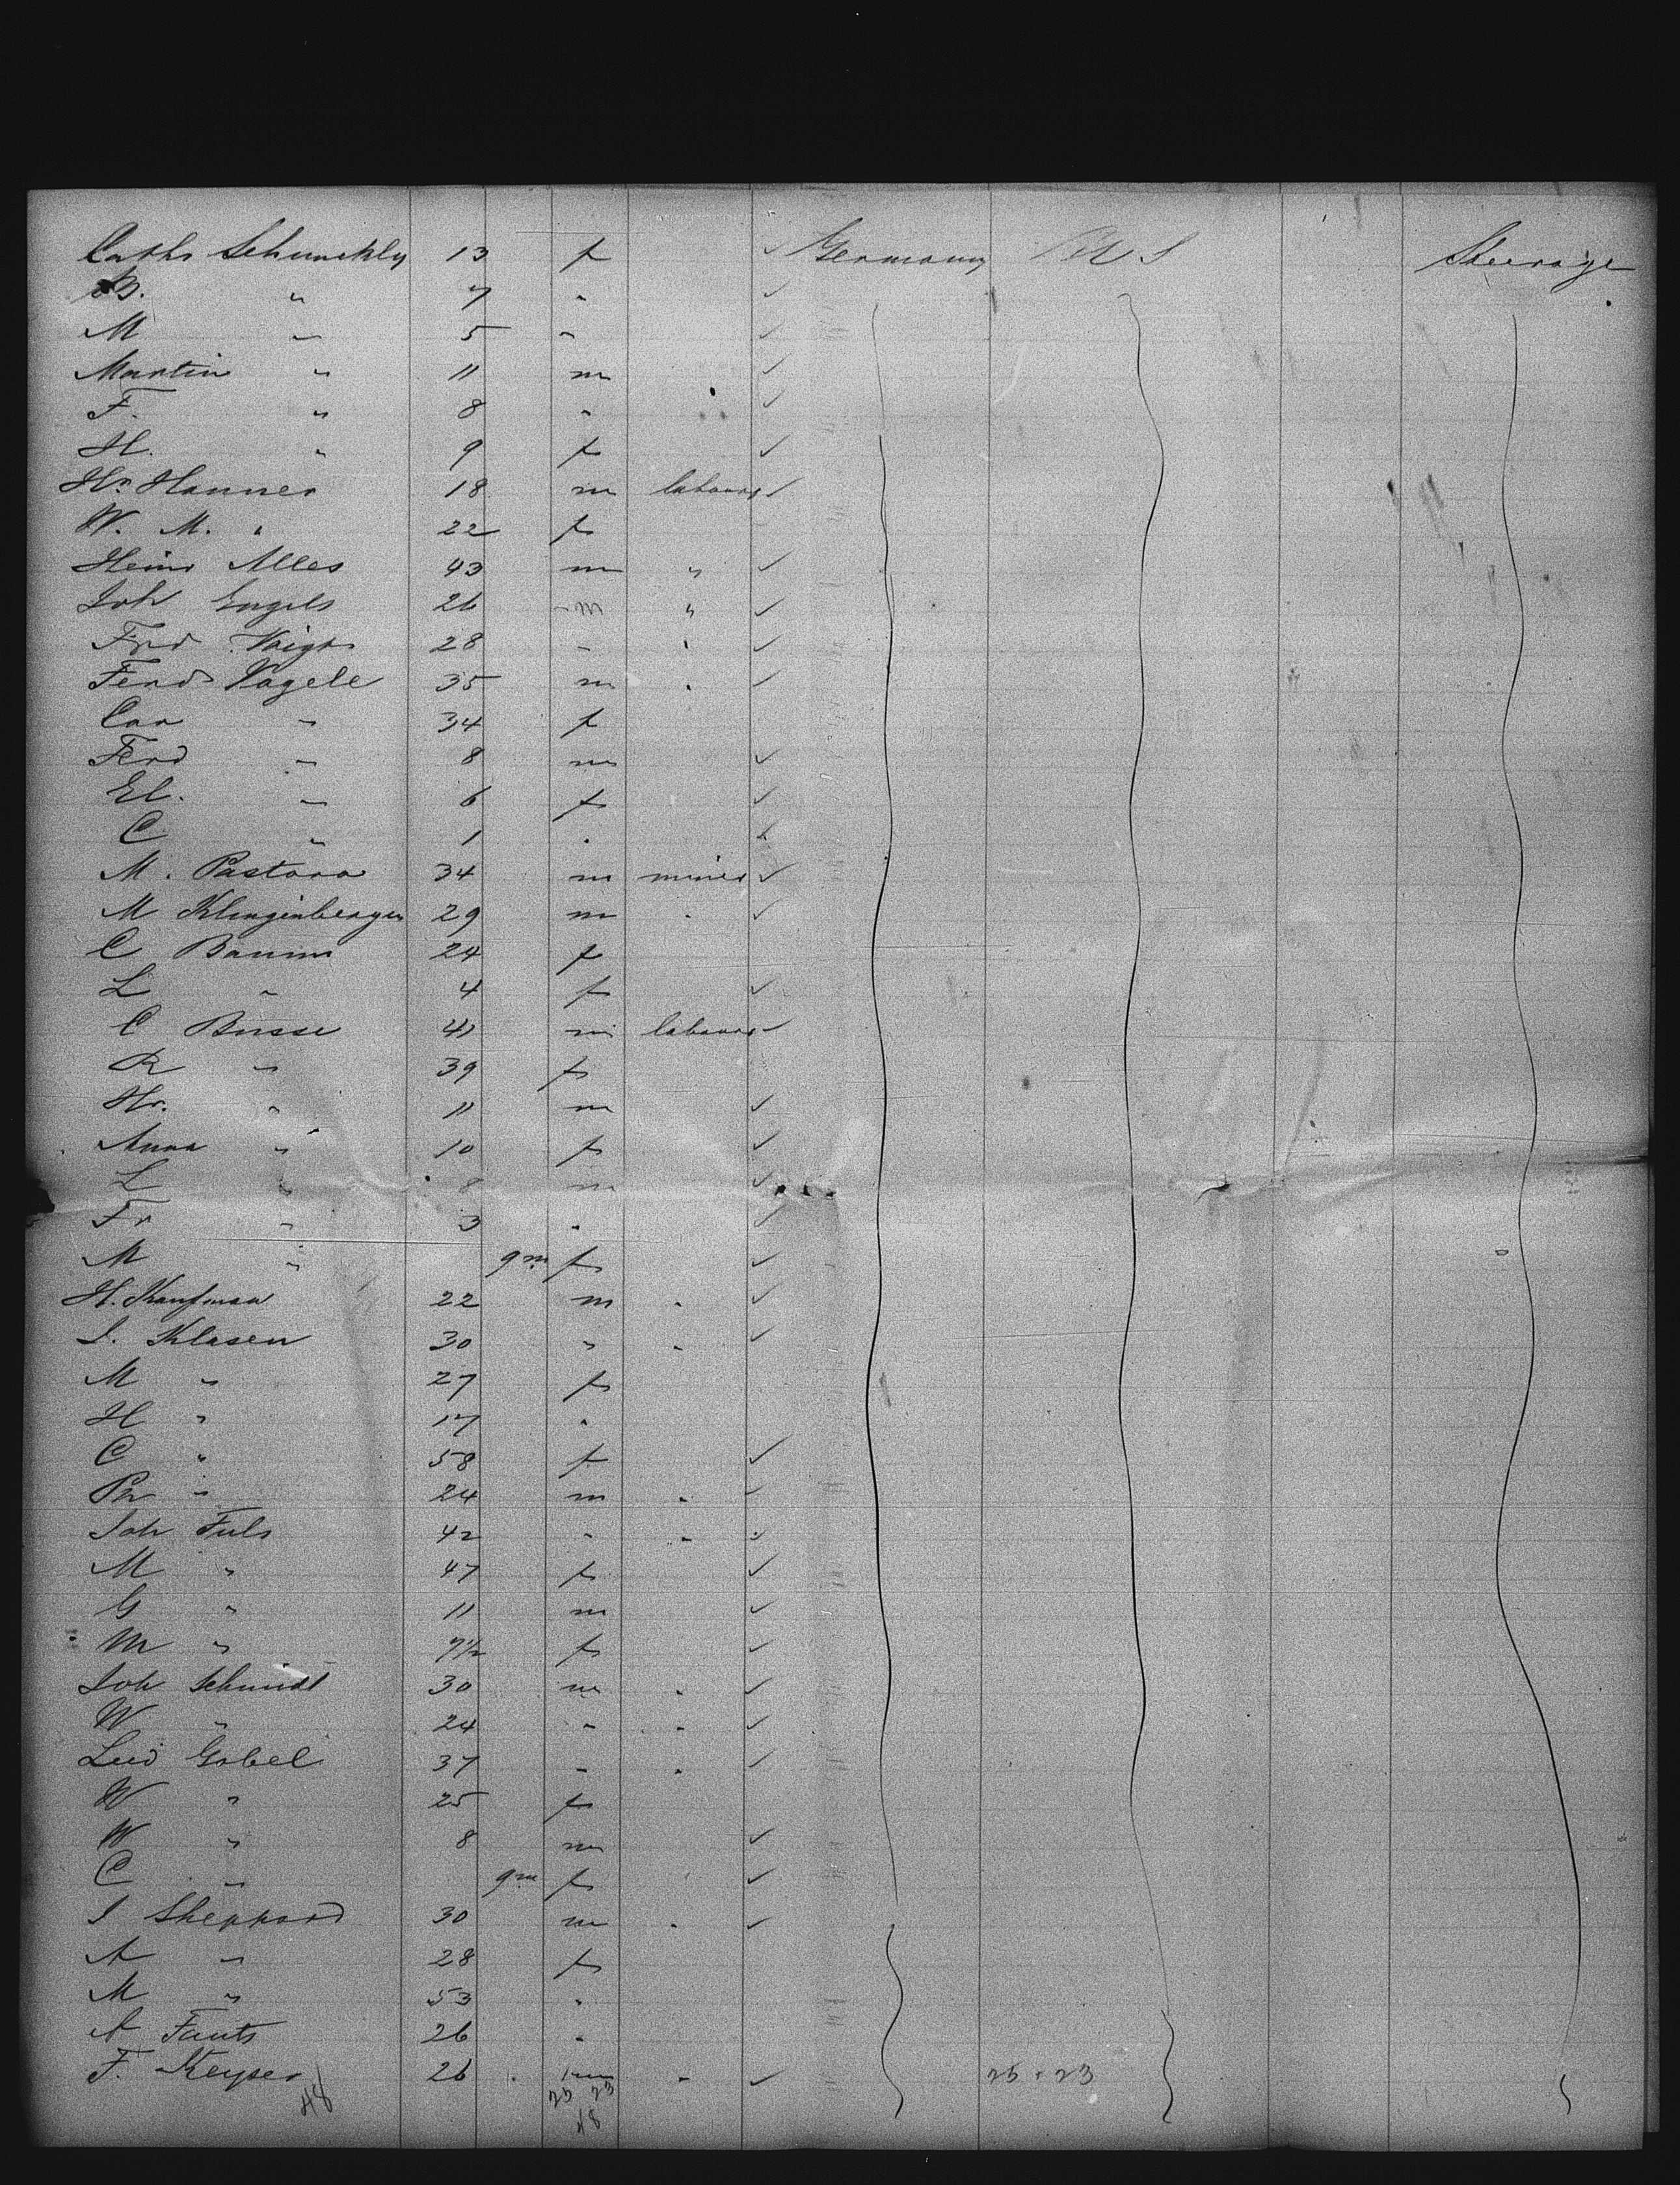 Cath Schunckly 13 f ✓ Germany U S Steerage
B. " 7 " ✓
M " 5 " ✓
Martin " 11 m ✓
F. " 8 " ✓
H. " 9 f ✓
Hr. Hanner 18 m labourer ✓
W. M. " 22 f
Heinr Alles 43 m " ✓
Joh Engels 26 m " ✓
Frd Voigt 28 " " ✓
Ferd Vogele 35 m " ✓
Car " 34 f
Ferd " 8 m ✓
El. " 6 f ✓
C " 1 " ✓
M. Pastora 34 m miner ✓
M Klingenberger 29 m " ✓
C Baum 24 f
L " 4 f ✓
C Busse 41 m labourer ✓
R " 39 f
Hr. " 11 m ✓
Anna " 10 f ✓
L " 8 m ✓
Fr " 3 " ✓
M " 9m f ✓
H. Kaufman 22 m " ✓
J. Klasen 30 " " ✓
M " 27 f
H " 17 "
C " 58 f ✓
Pr " 24 m " ✓
Joh Fuls 42 " " ✓
M " 47 f ✓
G " 11 m ✓
M " 9½ f ✓
Joh Schmidt 30 m " ✓
W " 24 " " ✓
Lud Gobel 37 " " ✓
W " 25 f
W " 8 m ✓
C " 9m f ✓
J Sheppard 30 m " ✓
A " 28 f
M " 53 "
A Fauts 26 "
F. Keyser 26 m " ✓ 25 . 23
48 25 23
48